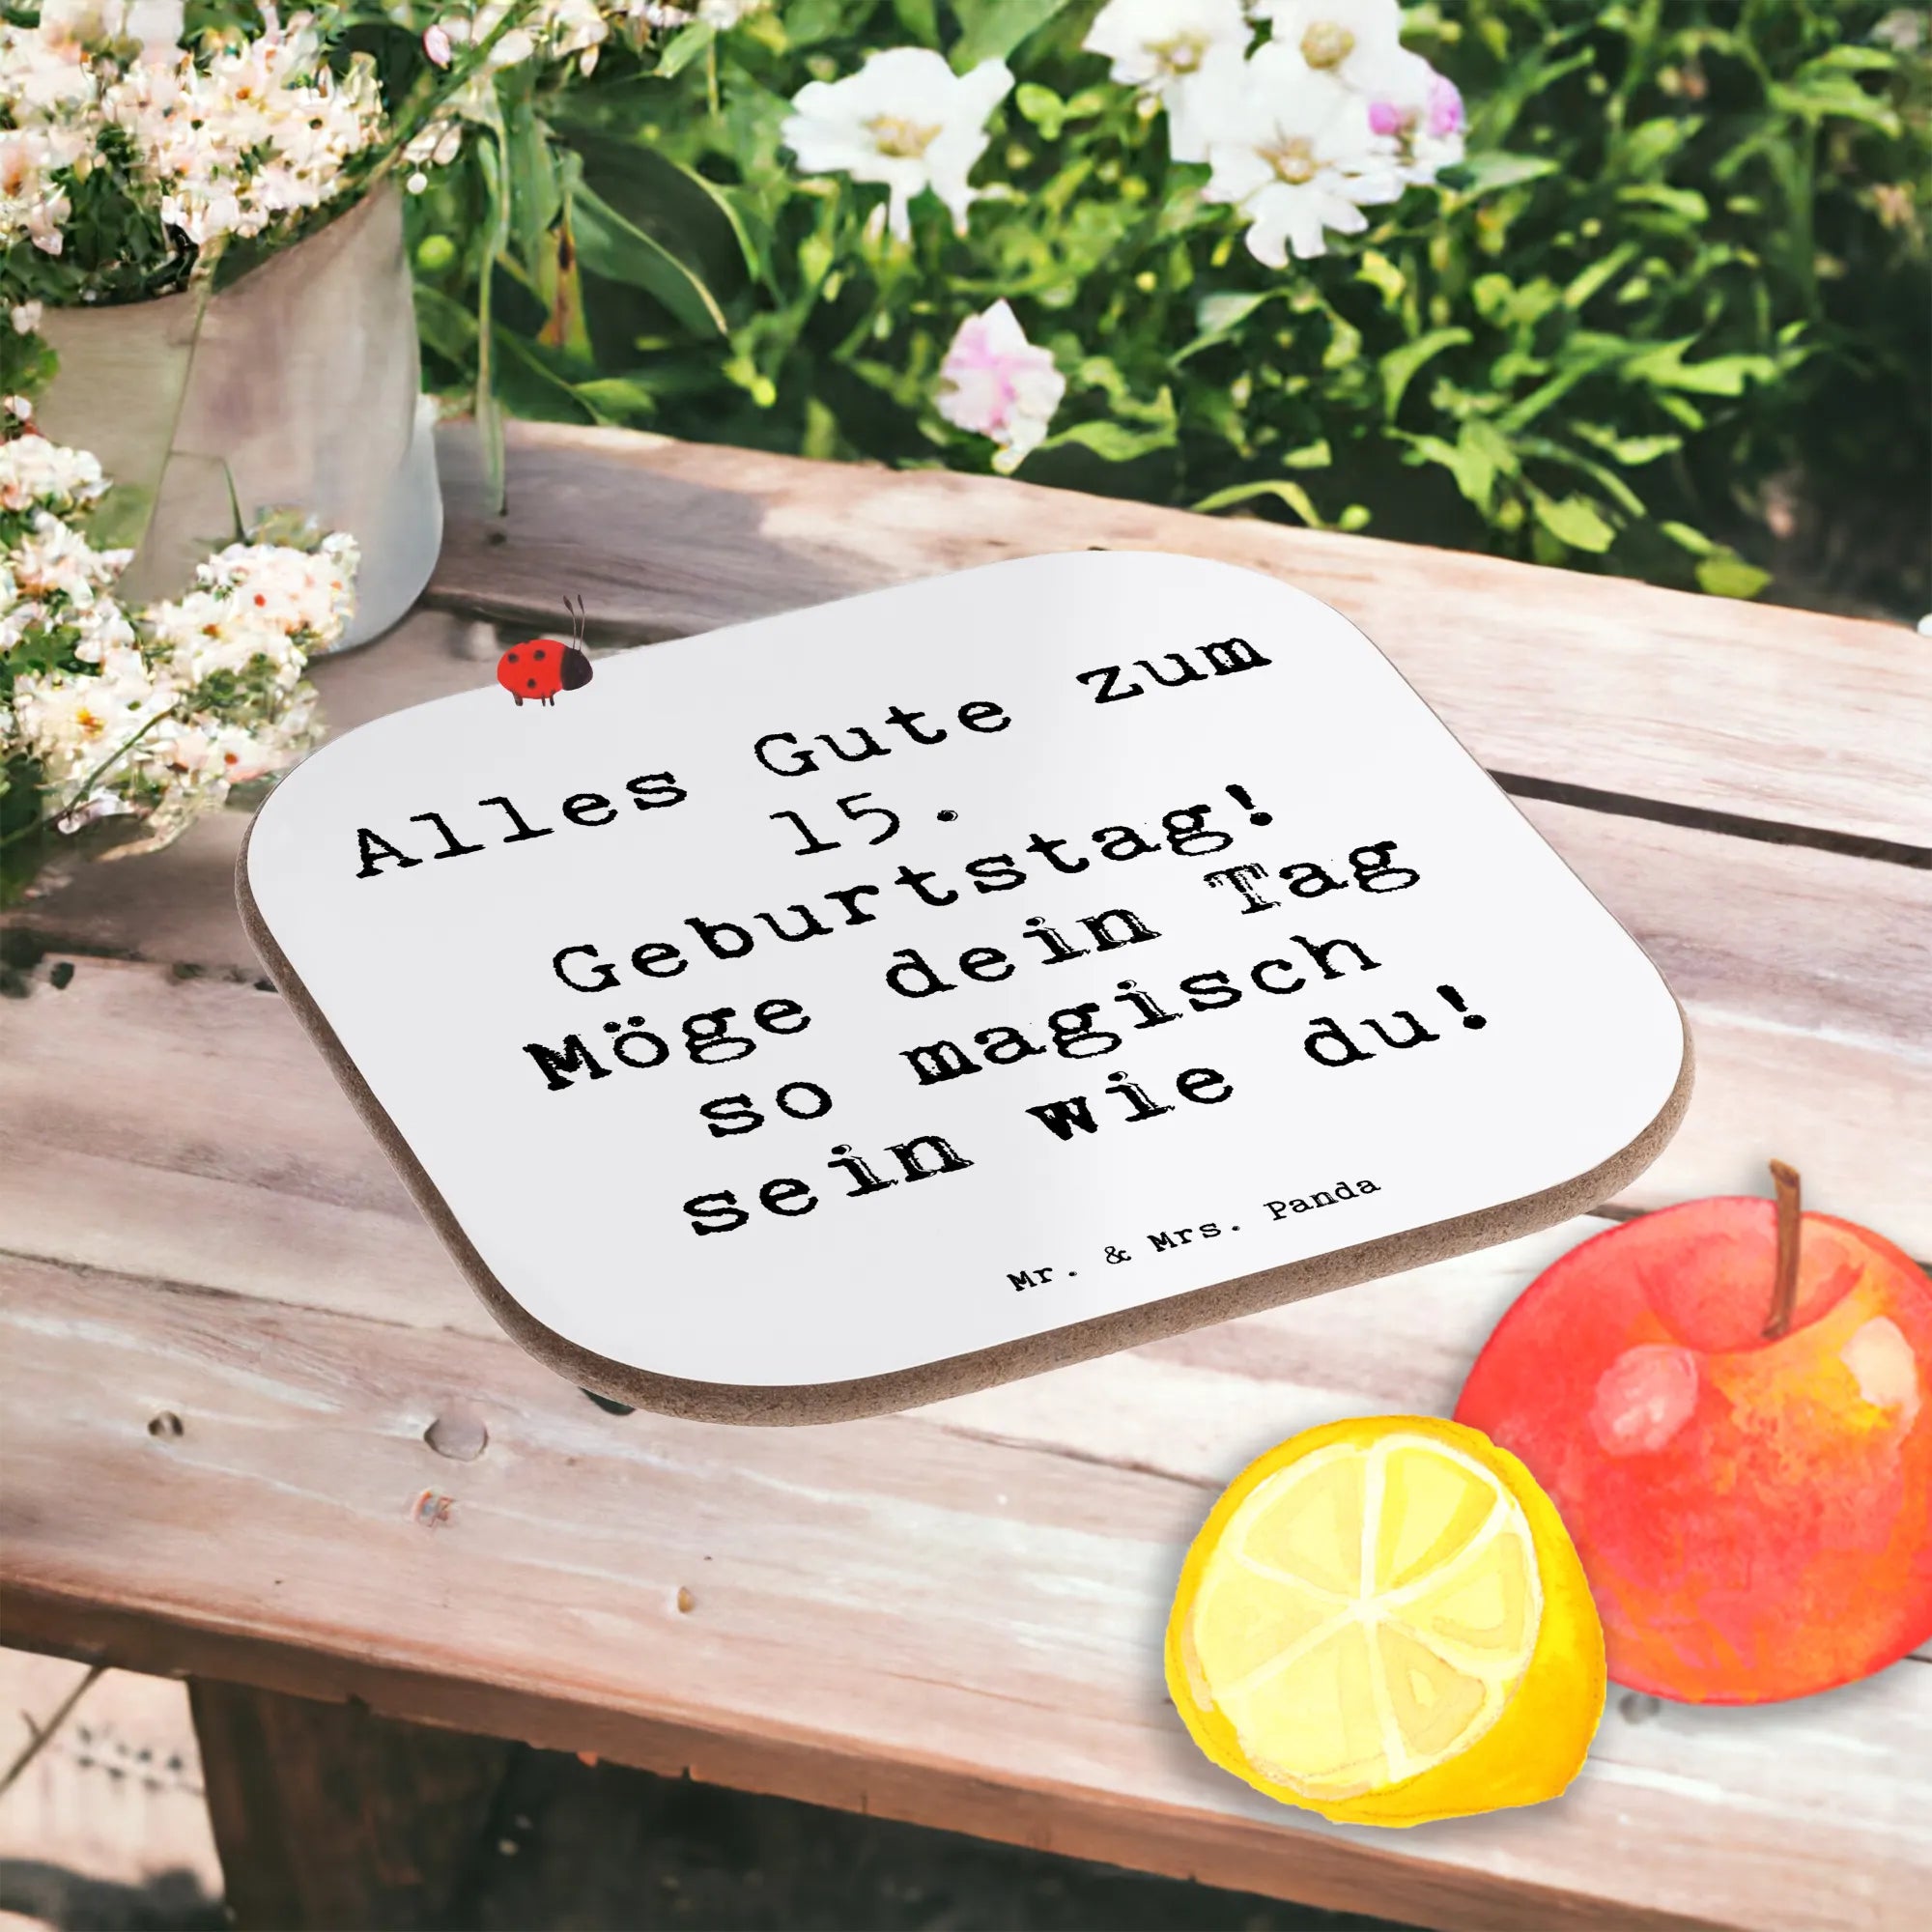 Alles Gute zum
15.
Geburtstag!
Möge dein Tag
so magisch
sein wie du!
Mr. & Mrs. Panda